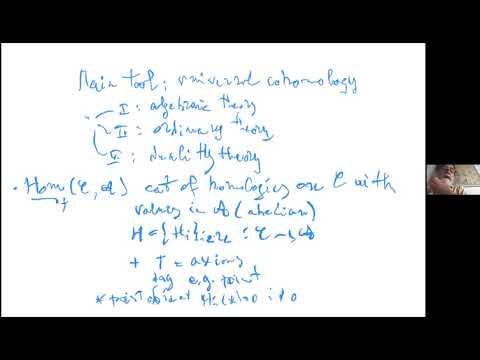 Main tool: universal cohomology
I: algebraic theory
II: ordinary theory
III: duality theory
• Hom₊(𝒞, 𝒜) cat of homologies on 𝒞 with
values in 𝒜 (abelian)
H = {Hᵢ}i∈ℤ : 𝒞 → 𝒜
+ T = axioms
e.g. point
* point object Hᵢ(*)=0 i≠0